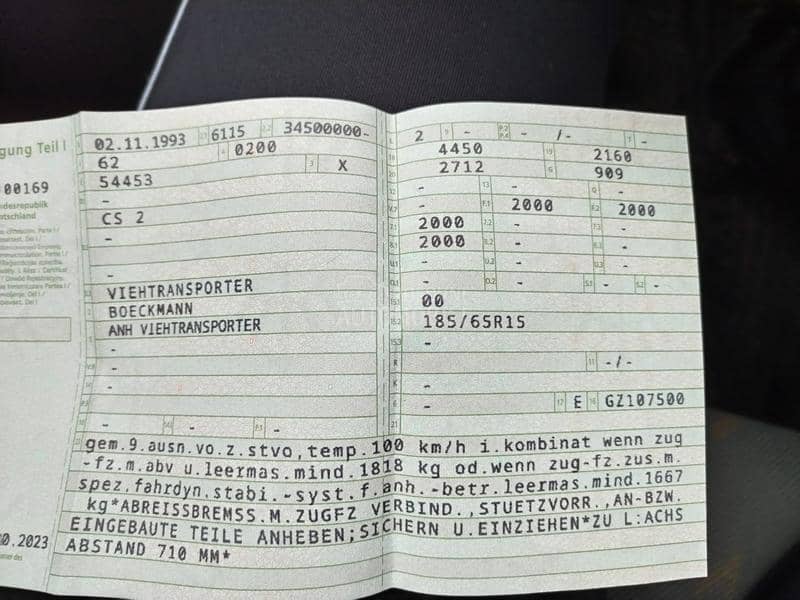 gung Teil I
00169
ndesrepublik
utschland
0.2023
02.11.1993 6115 34500000-
62 0200
54453 X
-
CS 2
-
-
VIEHTRANSPORTER
BOECKMANN
ANH VIEHTRANSPORTER
-
-
-
- - -
2 - - /- -
4450 2160
2712 909
- - -
- 2000 2000
2000 - -
2000 - -
- - -
- - - -
00
185/65R15
-
- -/-
-
- E GZ107500
gem.9.ausn.vo.z.stvo,temp.100 km/h i.kombinat wenn zug
-fz.m.abv u.leermas.mind.1818 kg od.wenn zug-fz.zus.m.
spez.fahrdyn.stabi.-syst.f.anh.-betr.leermas.mind.1667
kg*ABREISSBREMSS.M.ZUGFZ VERBIND.,STUETZVORR.,AN-BZW.
EINGEBAUTE TEILE ANHEBEN;SICHERN U.EINZIEHEN*ZU L:ACHS
ABSTAND 710 MM*